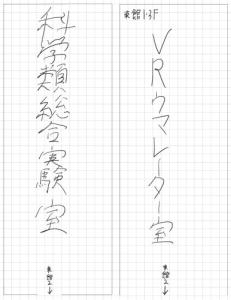 科学類総合実験室
東館2↓
東館1-3F
VRウマレーター室
東館2↓